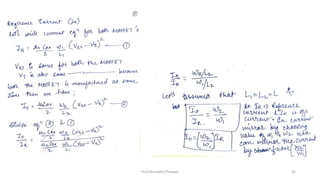 Reference Current (Ix)
Let's will current eqn for both MOSFET's
IR = μn Cox/2 W1/L1 (VGS - VT)² — ①
VGS is same for both the MOSFET
VT is also same because
both the MOSFET is manufactured at same
time than we have;
I0 = μn Cox/2 W2/L2 (VGS - VT)² — ②
divide eqn ② & ①
I0/IR = μn Cox/2 W2/L2 (VGS - VT)² / μn Cox/2 W1/L1 (VGS - VT)²
I0/IR = W2/L2 / W1/L1
Let's assumed that L1 = L2 = L
I0/IR = W2/W1
I0 = [W2/W1] IR
So Ix = Reference
current & I0 is o/p
current. In current
mirror by choosing
value of W1 & W2 we
can mirror the current
by factor [W2/W1]
Prof.Shrinath Patgar